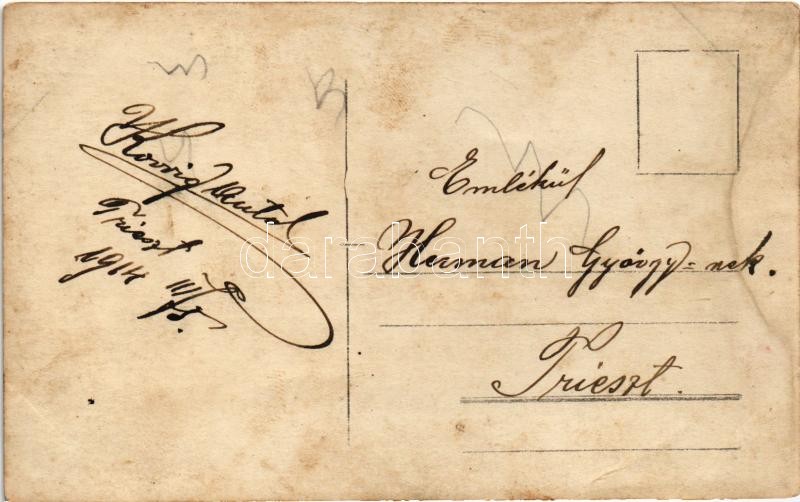 Trieszt
1914 III/15.
Emlékül
Herman György-nek.
Trieszt.
darabanth